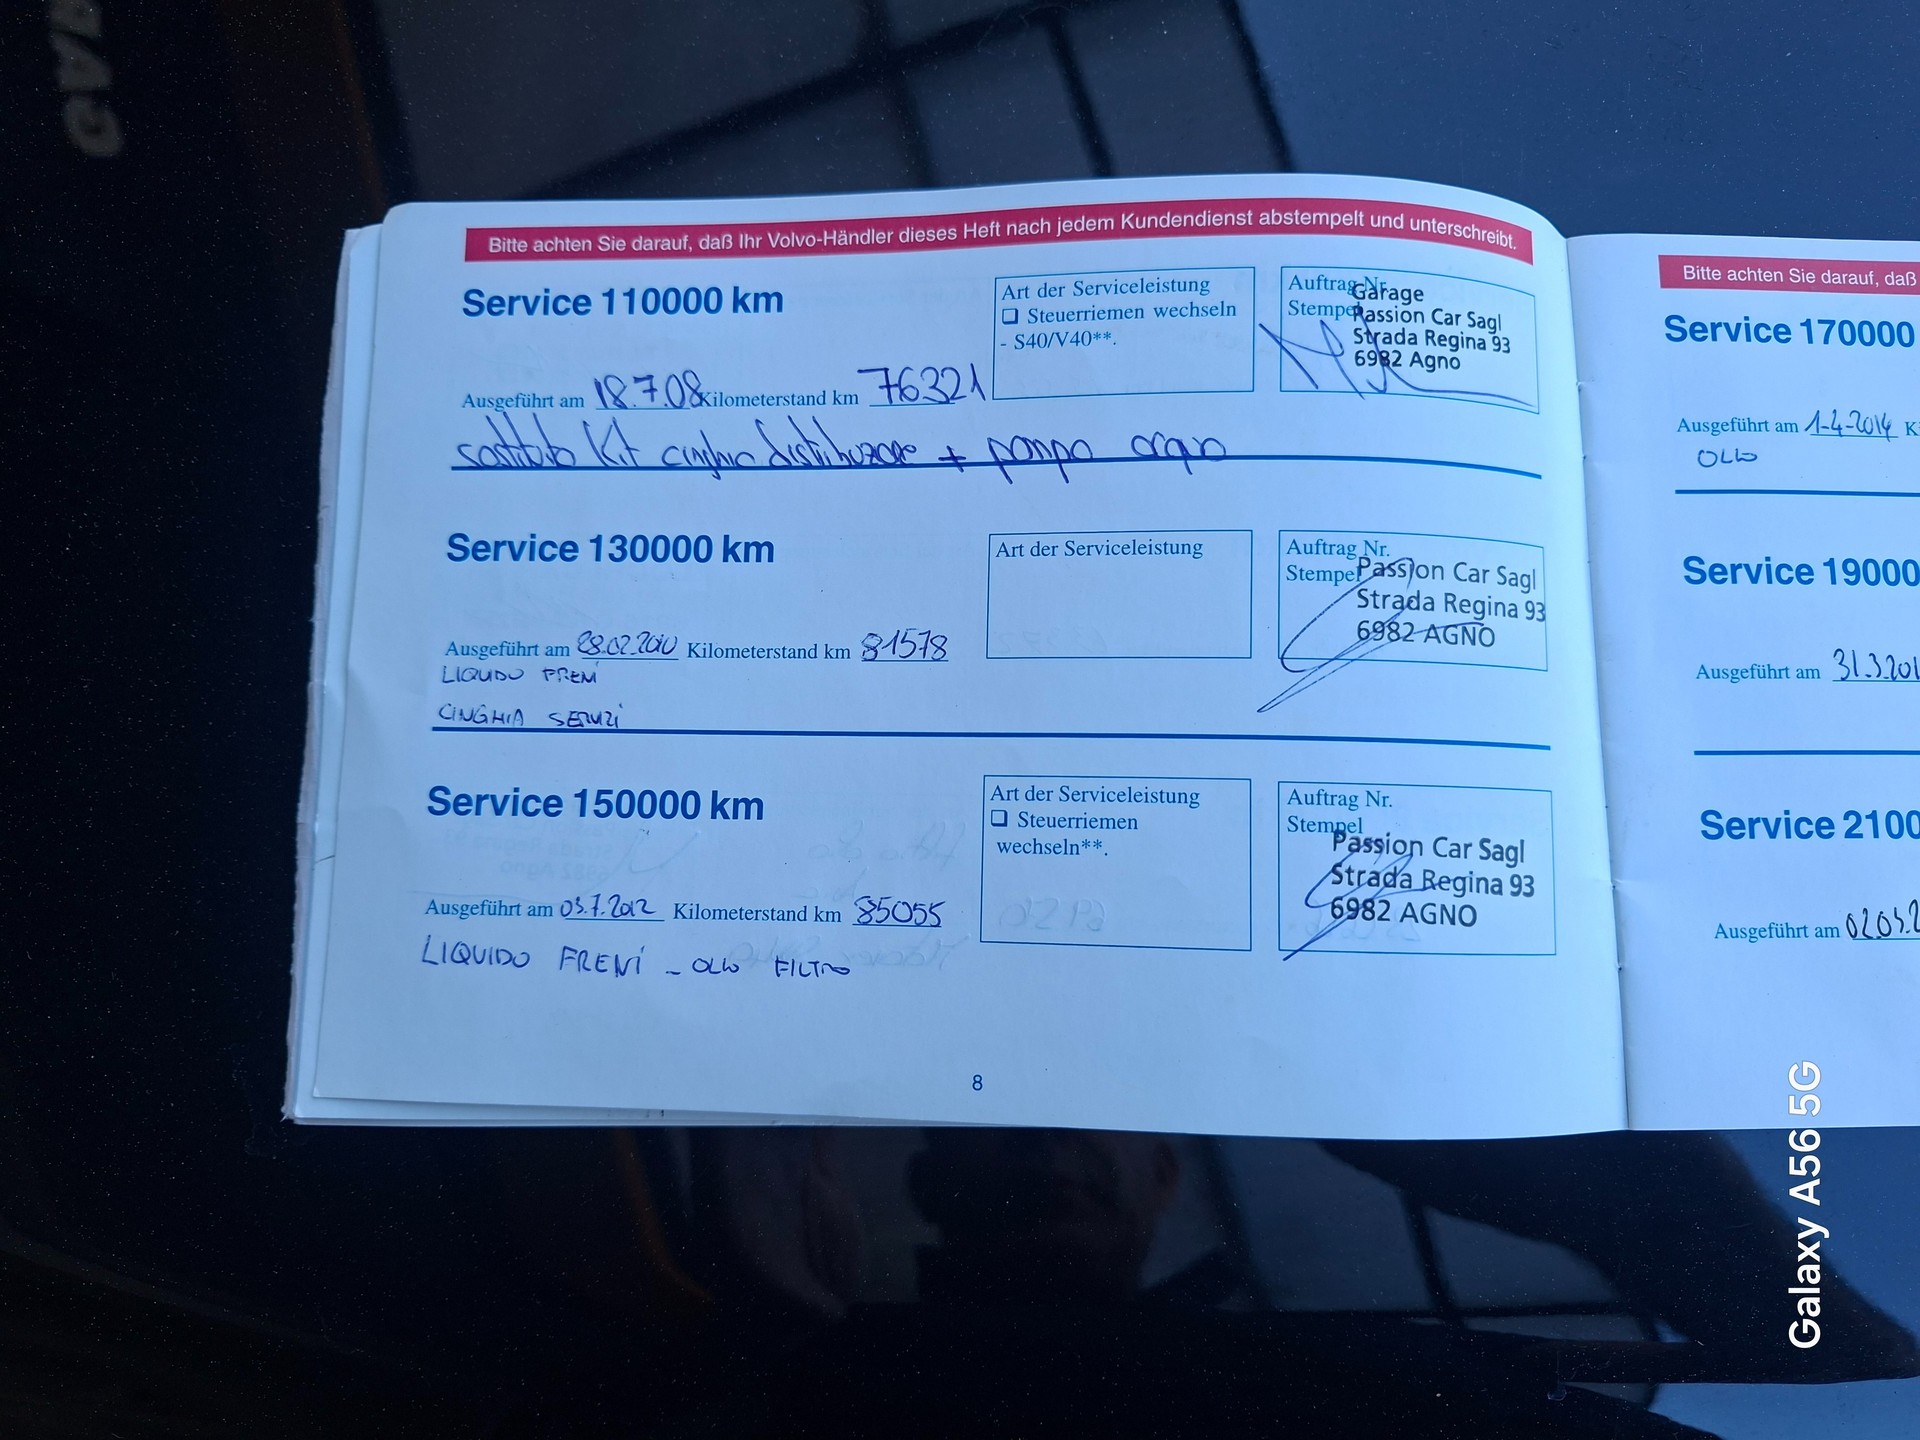 Bitte achten Sie darauf, daß Ihr Volvo-Händler dieses Heft nach jedem Kundendienst abstempelt und unterschreibt.
Service 110000 km
Art der Serviceleistung
❑ Steuerriemen wechseln
- S40/V40**.
Auftrag Nr.
Stempel
Garage
Passion Car Sagl
Strada Regina 93
6982 Agno
Ausgeführt am 18.7.08 Kilometerstand km 76321
sostituito Kit cinghia distribuzione + pompa acqua
Service 130000 km
Art der Serviceleistung
Auftrag Nr.
Stempel
Passion Car Sagl
Strada Regina 93
6982 AGNO
Ausgeführt am 28.02.2010 Kilometerstand km 81578
LIQUIDO FRENI
CINGHIA SERVIZI
Service 150000 km
Art der Serviceleistung
❑ Steuerriemen
wechseln**.
Auftrag Nr.
Stempel
Passion Car Sagl
Strada Regina 93
6982 AGNO
Ausgeführt am 03.7.2012 Kilometerstand km 85055
LIQUIDO FRENI - OLIO FILTRO
8
Bitte achten Sie darauf, daß
Service 170000
Ausgeführt am 1-4-2014 K
OLIO
Service 19000
Ausgeführt am 31.3.201
Service 2100
Ausgeführt am 02.03.2
Galaxy A56 5G